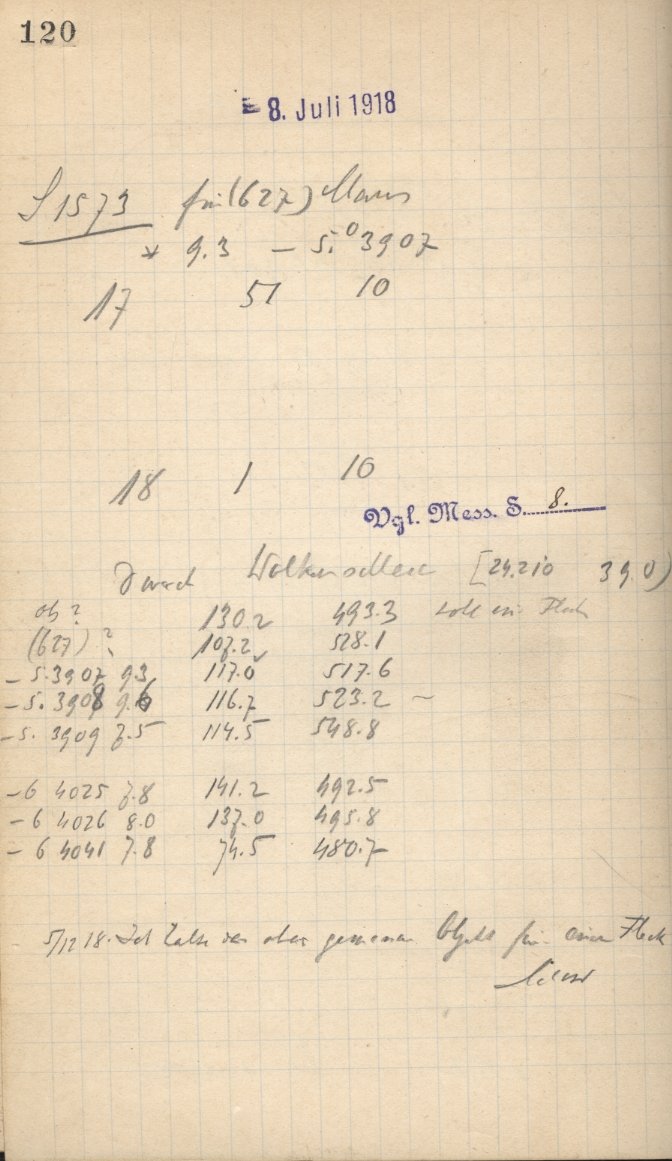 120
8. Juli 1918
S 1573 für (627)
* 9.3 – 5.° 3907
17 51 10
18 1 10
Vgl. Mess. S. 8.
durch [24.210 39.0)
ob? 130.2 493.3 Fleck
(627) ? 107.2 528.1
– 5.3907 9.3 117.0 517.6
– 5. 3908 9.6 116.7 523.2 –
– 5. 3909 7.5 114.5 548.8
– 6 4025 7.8 141.2 492.5
– 6 4026 8.0 137.0 495.8
– 6 4041 7.8 74.5 480.7
5/12 18. Ich halte das oben gemessene Objekt für einen Fleck